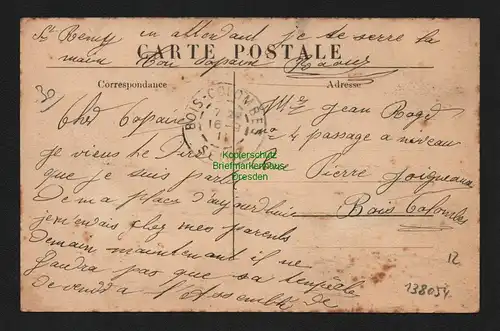 St Remy en attendant je te serre la
CARTE POSTALE
main Ton copain Raoul
Correspondance
Adresse
BOIS-COLOMBES
7
16
Kopierschutz
Briefmarkenhaus
Dresden
Mr Jean Roger
4 passage a niveau
Rue Pierre Joigneaux
Bois Colombes
Cher Copain
je viens te dire
que je suis parti
de ma place d'aujourd'hui
je m'en vais chez mes parents
demain maintenant il ne
faudra pas que sa
de
12
138054
30